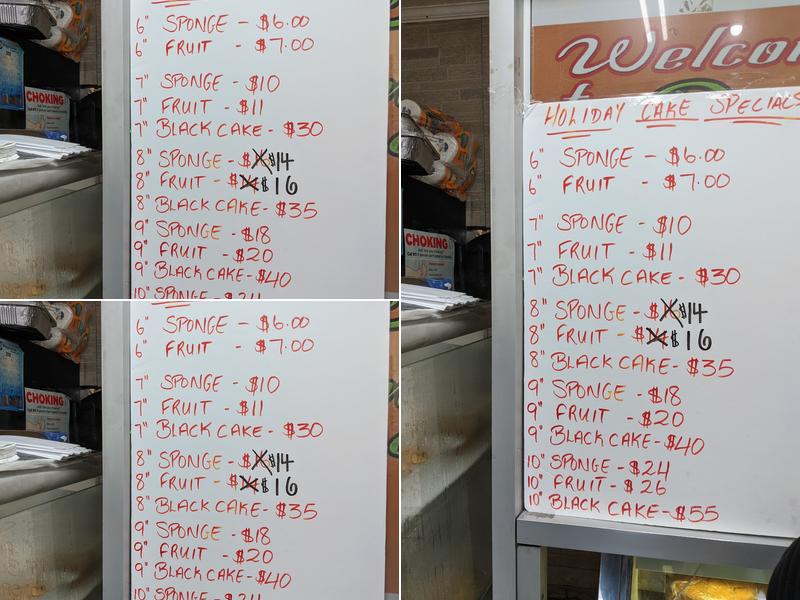 6" SPONGE - $6.00
6" FRUIT - $7.00
7" SPONGE - $10
7" FRUIT - $11
7" BLACK CAKE - $30
8" SPONGE - $14
8" FRUIT - $16
8" BLACK CAKE - $35
9" SPONGE - $18
9" FRUIT - $20
9" BLACK CAKE - $40
10" SPONGE - $24
CHOKING
6" SPONGE - $6.00
6" FRUIT - $7.00
7" SPONGE - $10
7" FRUIT - $11
7" BLACK CAKE - $30
8" SPONGE - $14
8" FRUIT - $16
8" BLACK CAKE - $35
9" SPONGE - $18
9" FRUIT - $20
9" BLACK CAKE - $40
10" SPONGE - $24
CHOKING
Welco
HOLIDAY CAKE SPECIALS
6" SPONGE - $6.00
6" FRUIT - $7.00
7" SPONGE - $10
7" FRUIT - $11
7" BLACK CAKE - $30
8" SPONGE - $14
8" FRUIT - $16
8" BLACK CAKE - $35
9" SPONGE - $18
9" FRUIT - $20
9" BLACK CAKE - $40
10" SPONGE - $24
10" FRUIT - $26
10" BLACK CAKE - $55
CHOKING